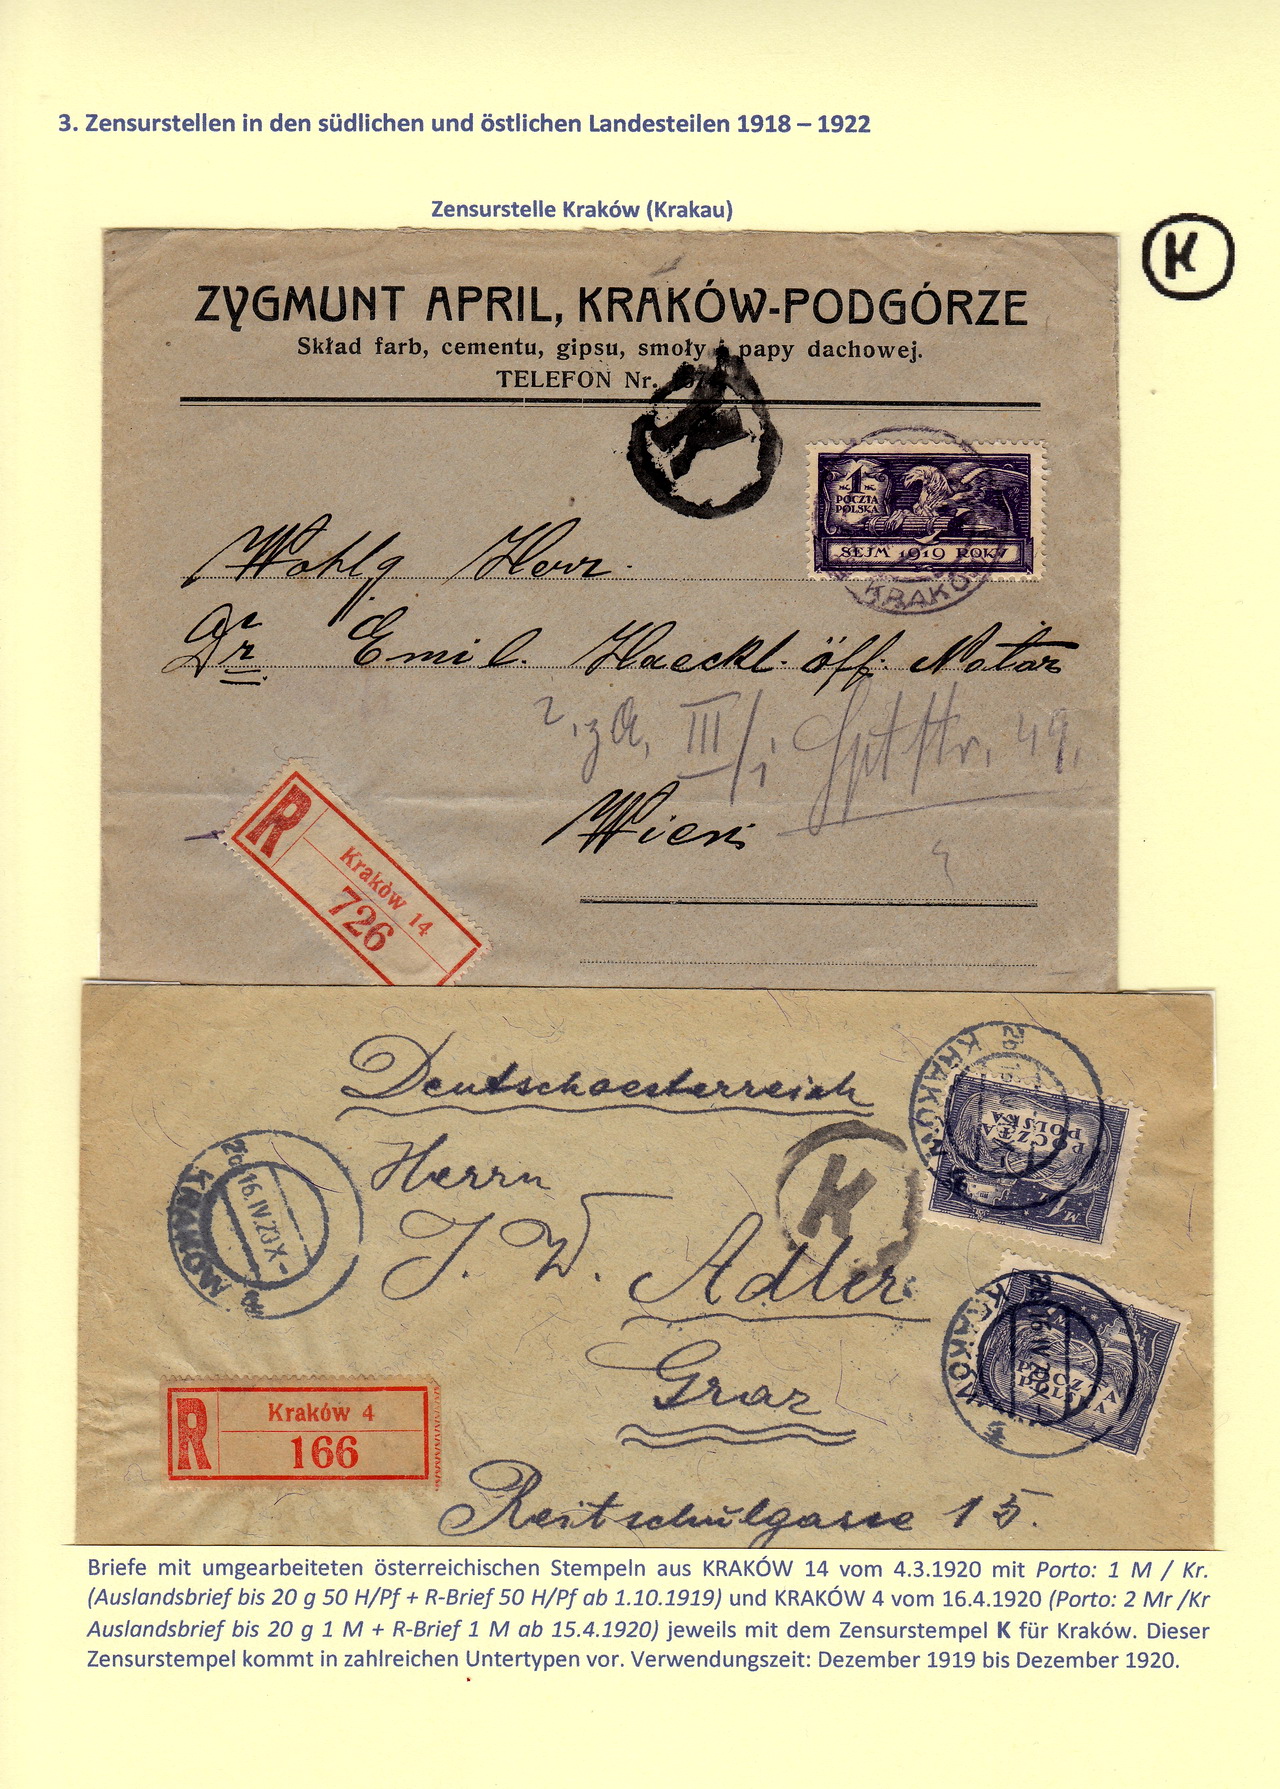 3. Zensurstellen in den südlichen und östlichen Landesteilen 1918 – 1922
Zensurstelle Kraków (Krakau)
K
ZYGMUNT APRIL, KRAKÓW-PODGÓRZE
Skład farb, cementu, gipsu, smoły i papy dachowej.
TELEFON Nr.
1
POCZTA
POLSKA
SEJM 1919 ROKU
KRAKÓW
Wohlg Herr
Dr Emil Haeckl. öff. Notar
III/1 49.
Wien
R
Kraków 14
726
Deutschoesterreich
Herrn
J. W. Adler
Graz
Reitschulgasse 15.
K
KRAKÓW
POCZTA
POLSKA
KRAKÓW
16.IV.20
KRAKÓW
16.IV.20
POCZTA
POLSKA
R
Kraków 4
166
Briefe mit umgearbeiteten österreichischen Stempeln aus KRAKÓW 14 vom 4.3.1920 mit Porto: 1 M / Kr.
(Auslandsbrief bis 20 g 50 H/Pf + R-Brief 50 H/Pf ab 1.10.1919) und KRAKÓW 4 vom 16.4.1920 (Porto: 2 Mr /Kr
Auslandsbrief bis 20 g 1 M + R-Brief 1 M ab 15.4.1920) jeweils mit dem Zensurstempel K für Kraków. Dieser
Zensurstempel kommt in zahlreichen Untertypen vor. Verwendungszeit: Dezember 1919 bis Dezember 1920.